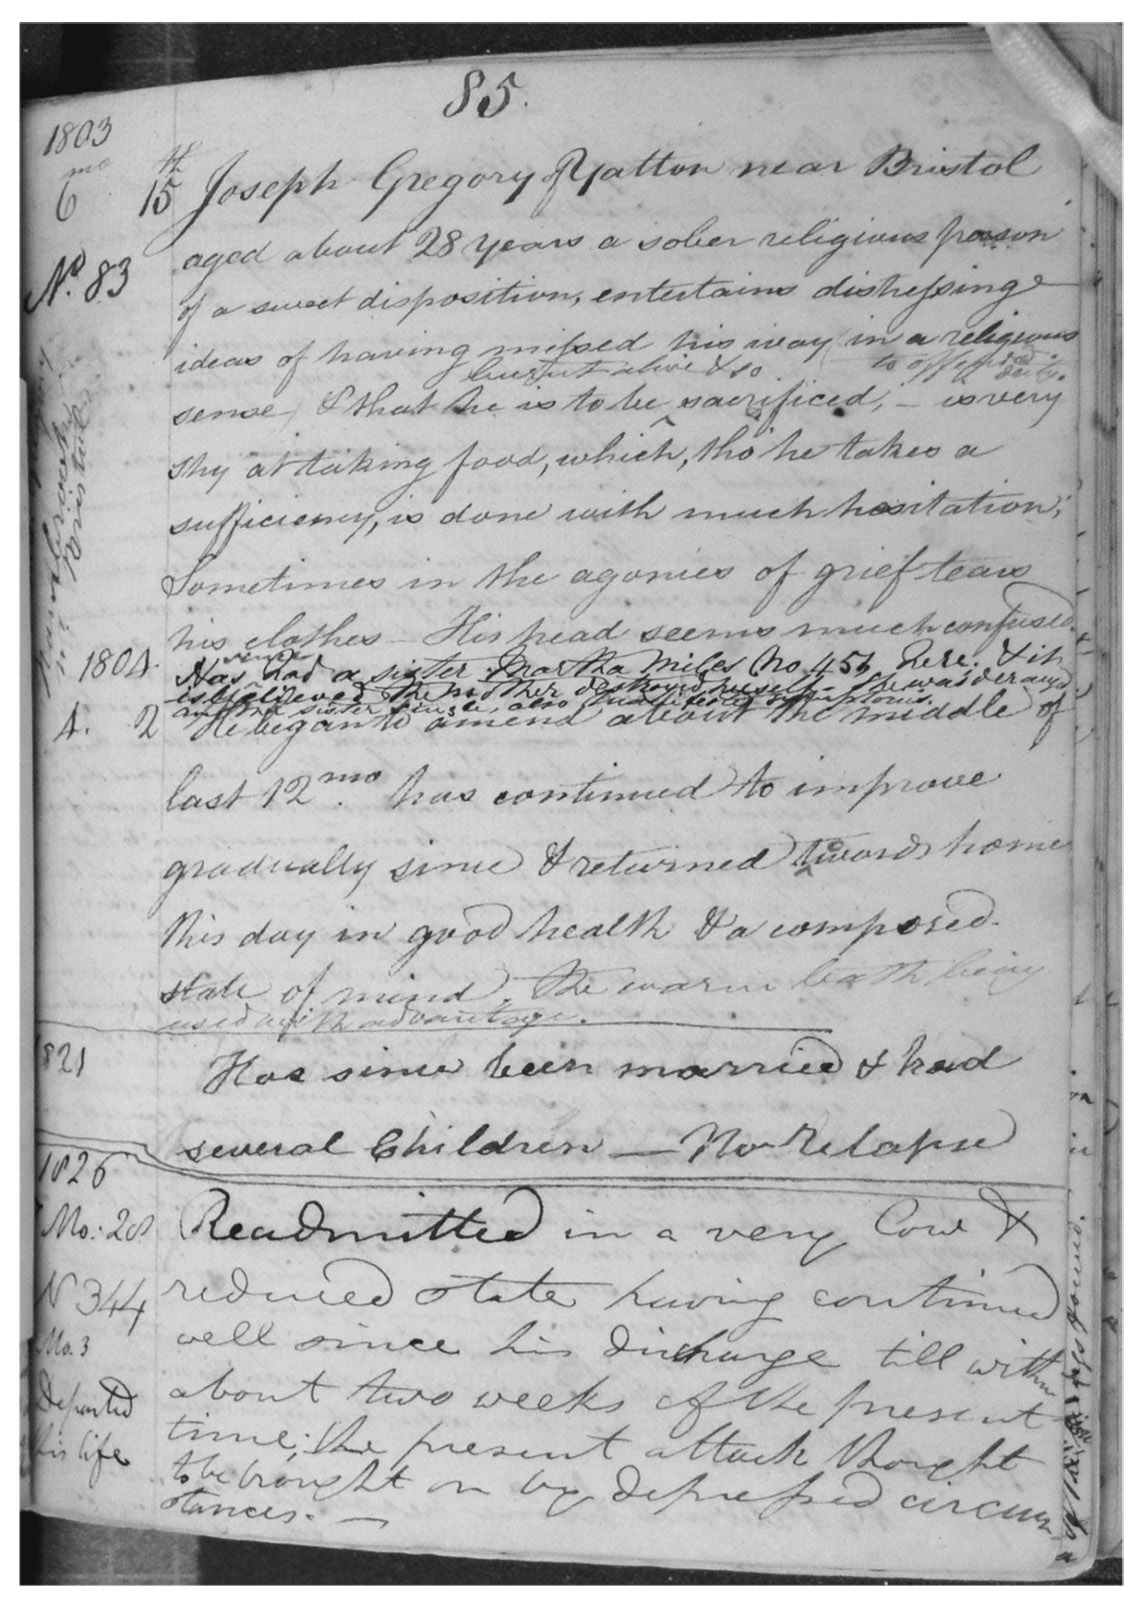 85.
1803
6 mo 15th Joseph Gregory of Yatton near Bristol
aged about 28 years a sober religious person
No. 83
of a sweet disposition, entertains distressing
ideas of having missed his way in a religious
burnt alive & so to appease deity.
sense, & that he is to be sacrificed; – is very
shy at taking food, which, tho he takes a
sufficiency, is done with much hesitation;
Sometimes in the agonies of grief tears
his clothes – His head seems much confused.
Bristol
1804
Has since had a sister Martha Miles No 456 here. & it
is believed the mother destroyed herself – she was deranged
and sister also symptoms.
4. 2 He began to amend about the middle of
last 12mo. has continued to improve
gradually since & returned towards home
this day in good health & a composed
state of mind. The warm bath being
used with advantage.
1821
Has since been married & had
several Children — No Relapse
1826
Mo: 28 Readmitted in a very low &
N 344
reduced state having continued
Mo. 3
well since his discharge till within
Departed
his life
about two weeks of the present
time; the present attack thought
to be brought on by depressed circum-
stances. —